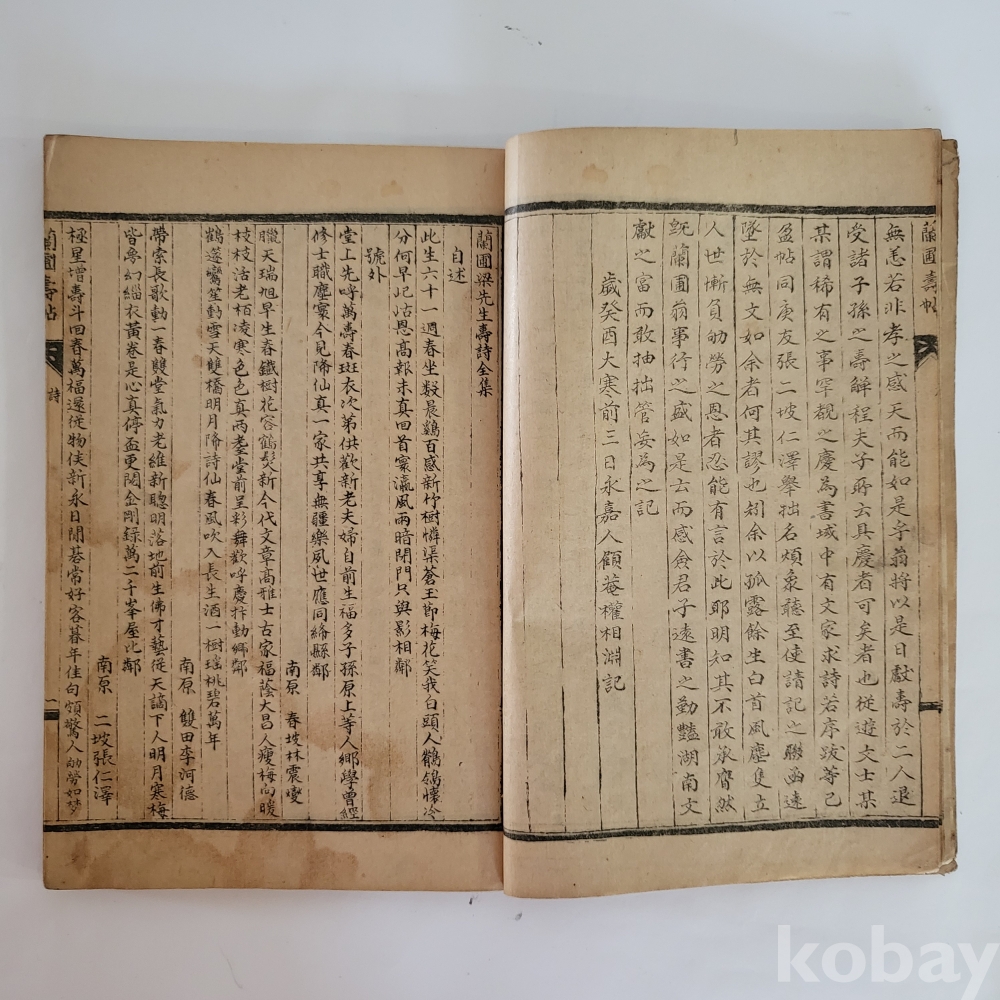 蘭圃壽帖
無恙若非孝之感天而能如是乎翁將以是日獻壽於二人退
受諸子孫之壽解程夫子所云具慶者可矣者也從遊文士某
某謂稀有之事罕覩之慶為書域中有文家求詩若序跋等已
盈帖同庚友張二坡仁澤擧拙名煩衆聽至使請記之聯函遠
墜於無文如余者何其謬也矧余以孤露餘生白首風塵隻立
人世慚負劬勞之恩者忍能有言於此耶明知其不敢承膺然
旣蘭圃翁事行之盛如是云而感僉君子遠書之勤豔湖南文
獻之富而敢抽拙管妄為之記
歲癸酉大寒前三日永嘉人顧菴權相淵記
蘭圃梁先生壽詩全集
自述
此生六十一週春坐數晨鷄百感新竹樹憐渠蒼玉節梅花笑我白頭人鶺鴒懷冷
分何早屺岵恩高報未真回首寰瀛風雨暗閉門只與影相鄰
號外
堂上先呼萬壽春斑衣次第供歡新老夫婦自前生福多子孫原上等人鄕學曾經
修士職塵寰今見降仙真一家共享無疆樂夙世應同絳縣鄰
南原 春坡林震燮
臘天瑞旭早生春鐵樹花容鶴髮新今代文章高雅士古家福蔭大昌人瘦梅向暖
枝枝活老栢凌寒色色真兩耋堂前呈彩舞歡呼慶抃動鄕鄰
鶴邊鸞笙動雪天雙橋明月降詩仙春風吹入長生酒一樹瑤桃碧萬年
南原 雙田李河德
帶索長歌動一春雙堂氣力老維新聰明落地前生佛才藝從天謫下人明月寒梅
皆夢幻緇衣黃卷是心真停盃更閱金剛錄萬二千峯屋比鄰
南原 二坡張仁澤
極星增壽斗回春萬福還從物侯新永日閒碁常好客暮年佳句頻驚人劬勞如夢
蘭圃壽帖
詩
一
kobay